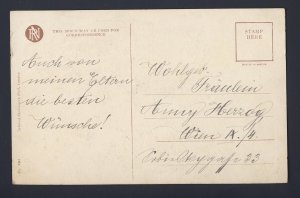 THIS SPACE MAY BE USED FOR
CORRESPONDENCE
STAMP
HERE
Auch von
meinen Eltern
die besten
Wünsche!
Wohlgeb.
Fräulein
Anny Herzog
Wien
23